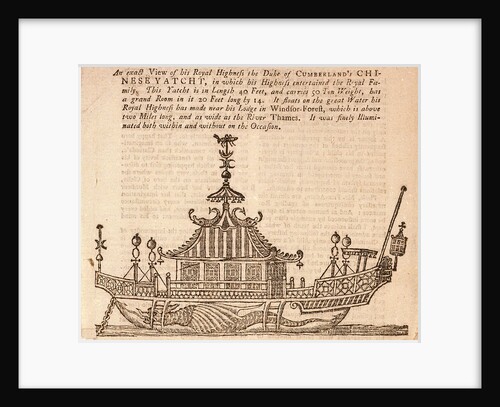 An exact View of his Royal Highneſs the Duke of CUMBERLAND's CHI-
NESE YATCHT, in which his Highneſs entertained the Royal Fa-
mily. This Yatcht is in Length 40 Feet, and carries 50 Ton Weight, has
a grand Room in it 20 Feet long by 14. It floats on the great Water his
Royal Highneſs has made near his Lodge in Windſor-Foreſt, which is above
two Miles long, and as wide as the River Thames. It was finely Illumi-
nated both within and without on the Occaſion.